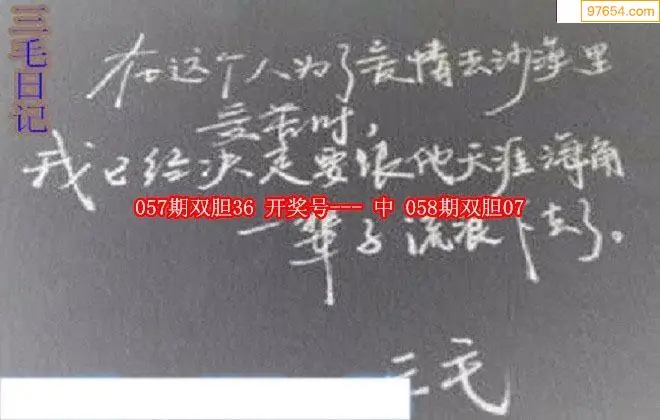 97654.com
三毛日记
在这个人为了爱情去沙漠里
受苦时，
我已经决定要跟他天涯海角
057期双胆36 开奖号--- 中 058期双胆07
一辈子流浪下去了。
三毛